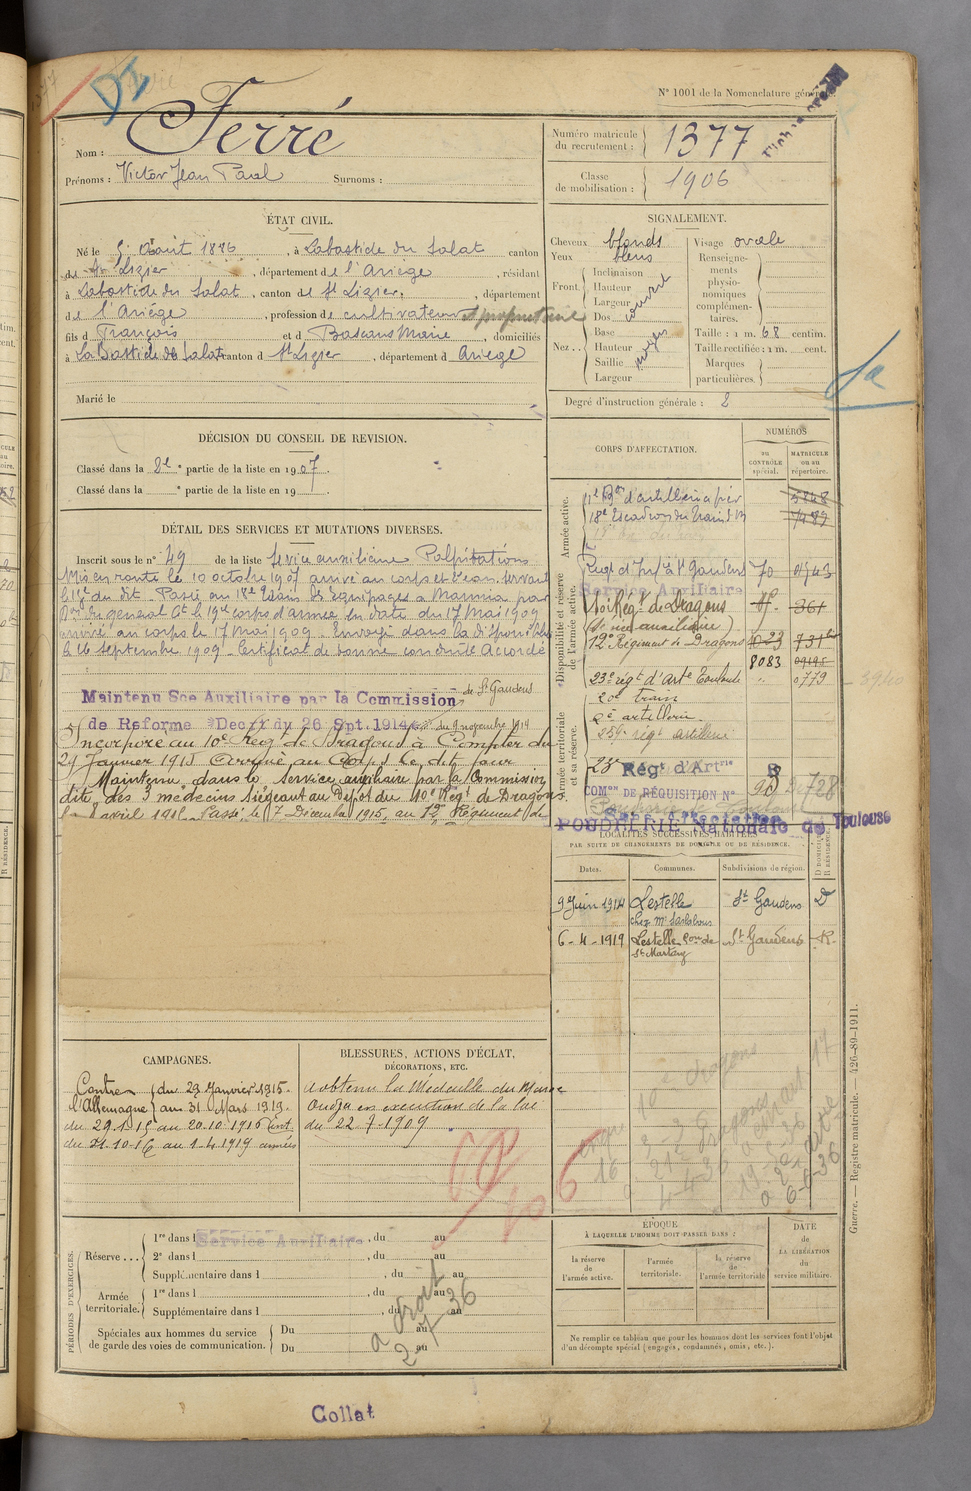 N° 1001 de la Nomenclature générale.
Nom : Ferré
Prénoms : Victor Jean Paul Surnoms :
Numéro matricule du recrutement : 1377
Classe de mobilisation : 1906
ÉTAT CIVIL.
Né le 5 Août 1886, à Labastide du Salat canton
de St Lizier, département de l'Ariège, résidant
à Labastide du Salat, canton de St Lizier, département
de l'Ariège, profession de cultivateur et propriétaire
fils de François et de Bascans Marie, domiciliés
à La Bastide du Salat canton de St Lizier, département d Ariège
Marié le
SIGNALEMENT.
Cheveux blonds
Yeux bleus
Front. Inclinaison
Hauteur
Largeur
couvert
Nez.. Dos
Base
Hauteur
Saillie
Largeur
moyen
Visage ovale
Renseignements physionomiques complémentaires.
Taille : 1 m. 68 centim.
Taille rectifiée : 1 m. cent.
Marques particulières.
Degré d'instruction générale : 2
DÉCISION DU CONSEIL DE REVISION.
Classé dans la 2e partie de la liste en 1907.
Classé dans la e partie de la liste en 19 .
DÉTAIL DES SERVICES ET MUTATIONS DIVERSES.
Inscrit sous le n° 49 de la liste Service auxiliaire Palpitations
Mis en route le 10 octobre 1907 arrivé au corps et servant
le du dit. Passé au 18e des équipages à Marnia par
du général Ct le 19e corps d'armée en date du 17 Mai 1909
arrivé au corps le 17 Mai 1909. Envoyé dans la disponibilité
le 26 Septembre 1909. Certificat de bonne conduite Accordé
Maintenu Sce Auxiliaire par la Commission de St Gaudens
de Réforme Décret du 26 Spt. 1914 du 9 novembre 1914
Incorporé au 10e Régt de Dragons à Compter du
29 Janvier 1915 Arrivé au Corps le dit jour
Maintenu dans le service auxiliaire par la Commission
dite des 3 médecins siégeant au Dépôt du 10e Régt de Dragons
avril 1915. Passé le 7 Décembre 1915 au 12e Régiment de
CORPS D'AFFECTATION.
NUMÉROS
au CONTRÔLE spécial.
MATRICULE ou au répertoire.
Armée active.
d'artillerie à pied 3848
18e Escadron du Train 7489
Disponibilité et réserve de l'armée active.
Régt d'Infie à St Gaudens 70 01543
Service Auxiliaire
10e Régt de Dragons 361
(Service auxiliaire)
12e Régiment de Dragons 1023 731
8083
23e régt d'Artie Toulouse " 0779
3940
Armée territoriale et sa réserve.
20e train
2e artillerie
259e régt artillerie
23e Régt d'Artrie
COMon DE RÉQUISITION N° 98
728
Sans affectation
POUDRERIE Nationale de Toulouse
LOCALITÉS SUCCESSIVES HABITÉES
PAR SUITE DE CHANGEMENTS DE DOMICILE OU DE RÉSIDENCE.
Dates. Communes. Subdivisions de région. D DOMICILE R RÉSIDENCE.
9 Juin 1914 Lestelle St Gaudens D
chez Mr
6-4-1919 Lestelle con de St Martory St Gaudens R
CAMPAGNES.
Contre l'Allemagne du 29 Janvier 1915 au 31 Mars 1919.
du 29.1.15 au 20.10.1916 int
du 21.10.16 au 1-4-1919 armées
BLESSURES, ACTIONS D'ÉCLAT,
DÉCORATIONS, ETC.
a obtenu la Médaille du Maroc
Oudja en exécution de la loi
du 22-7-1909
106
2 dragons
212 Dragons
4-4-36
19-5-36
6-6-36
PÉRIODES D'EXERCICES.
Réserve... 1re dans l Service Auxiliaire, du au
2e dans l , du au
Supplémentaire dans l , du au
Armée territoriale. 1re dans l , du au
Supplémentaire dans l , du au
Spéciales aux hommes du service de garde des voies de communication. Du au
Du au
a droit
2-7-36
ÉPOQUE
À LAQUELLE L'HOMME DOIT PASSER DANS :
la réserve de l'armée active.
l'armée territoriale.
la réserve de l'armée territoriale
DATE DE LA LIBÉRATION du service militaire.
Ne remplir ce tableau que pour les hommes dont les services font l'objet
d'un décompte spécial (engagés, condamnés, omis, etc.).
Guerre. — Registre matricule. — 426-89-1911.
Collat